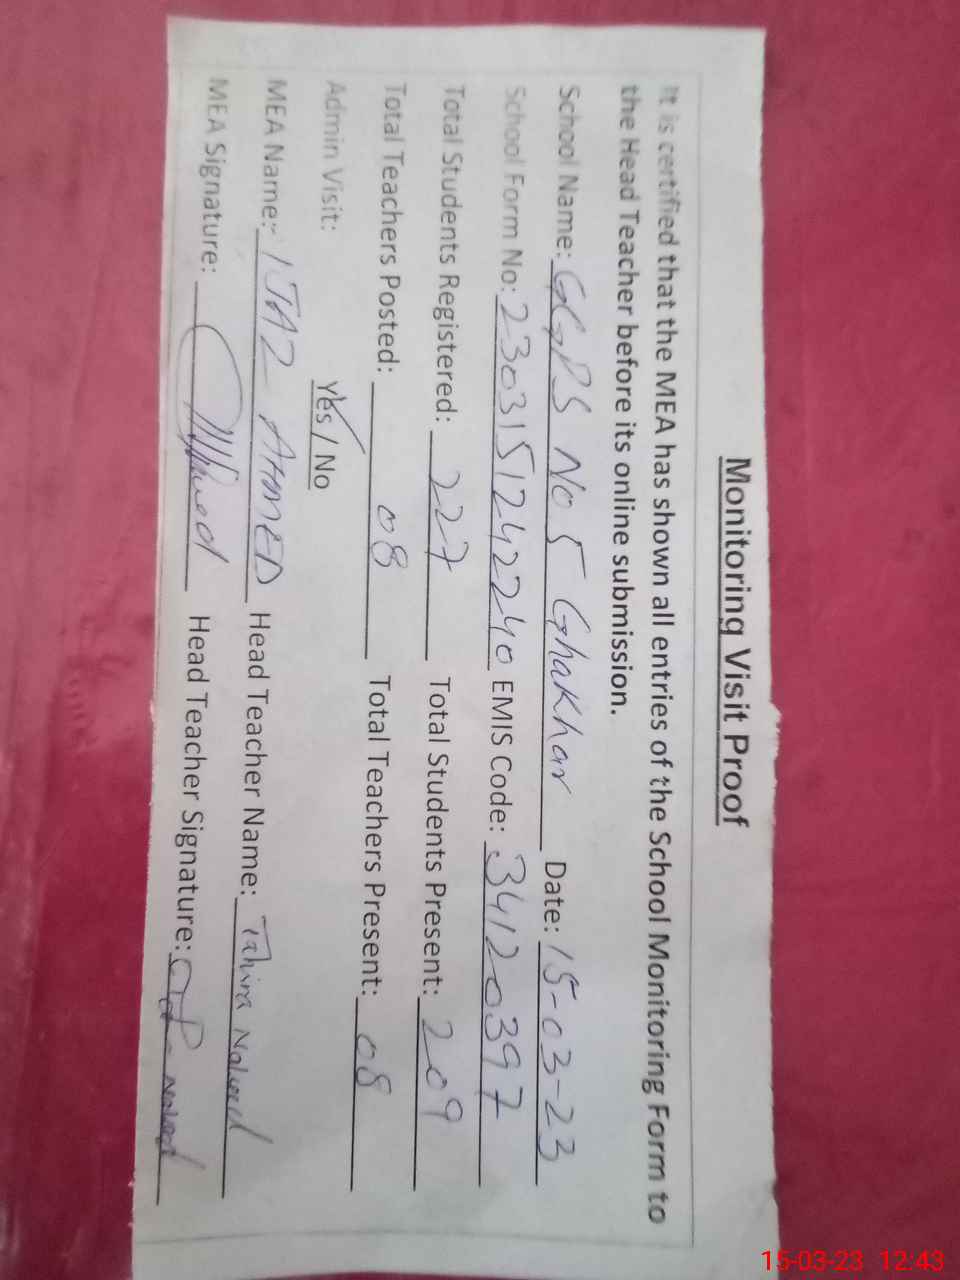 Monitoring Visit Proof
It is certified that the MEA has shown all entries of the School Monitoring Form to
the Head Teacher before its online submission.
School Name: GGPS No 5 Ghakhar Date: 15-03-23
School Form No: 2303151242240 EMIS Code: 34120397
Total Students Registered: 227 Total Students Present: 209
Total Teachers Posted: 08 Total Teachers Present: 08
Admin Visit: Yes / No
MEA Name: IJAZ AHMED Head Teacher Name: Tahira Naheed
MEA Signature: Head Teacher Signature:
15-03-23 12:43